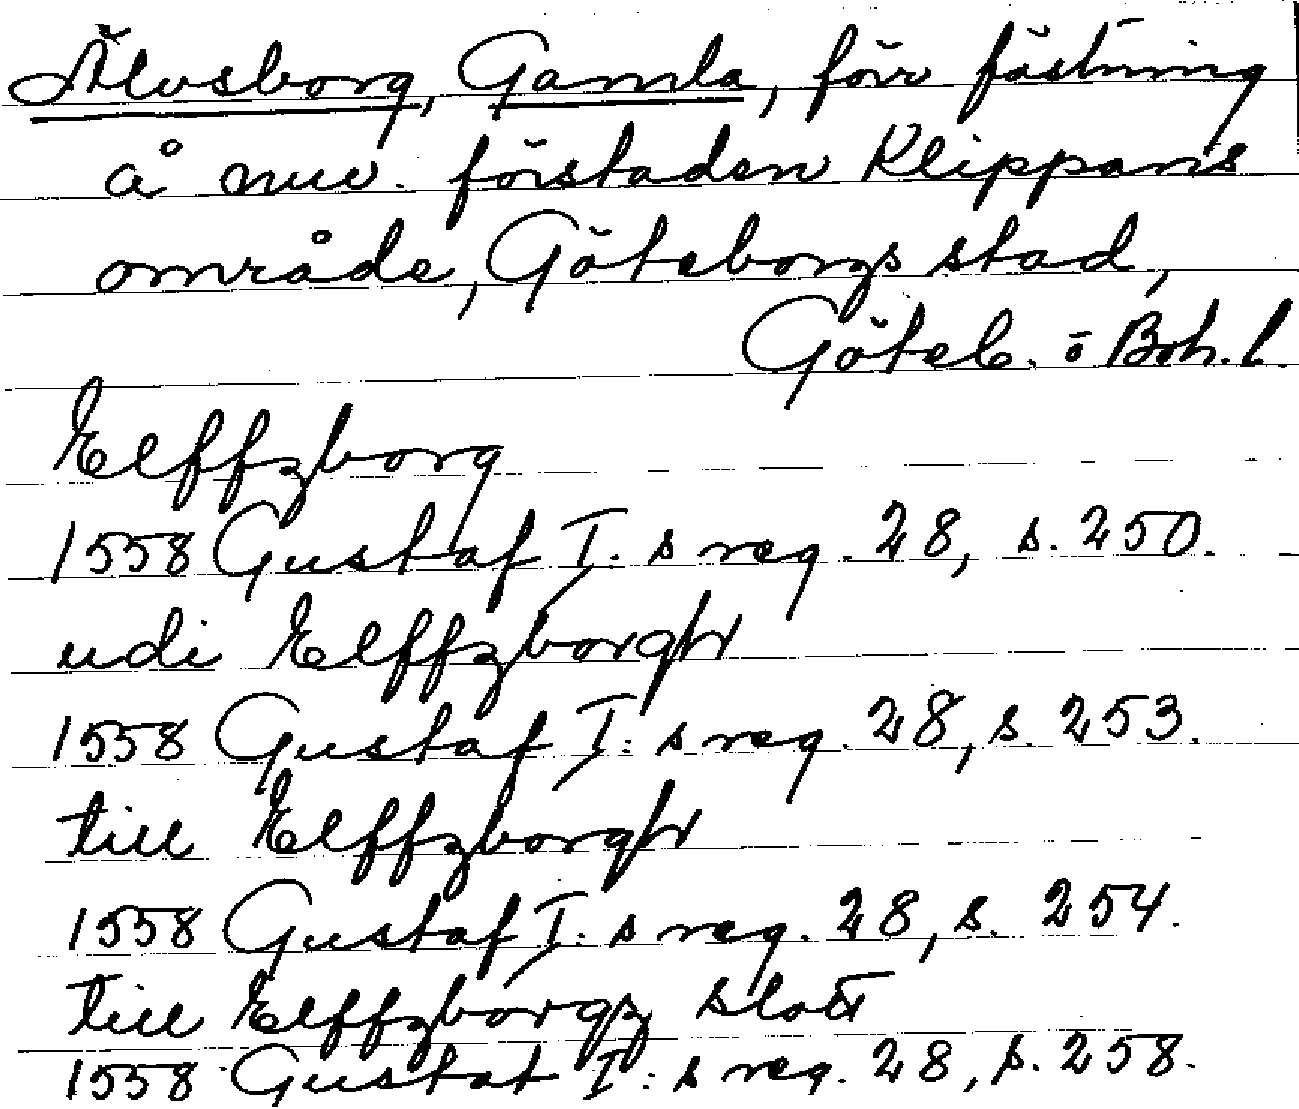 Älvsborg, Gamla, förr fästning
å nuv. förstaden Klippans
område, Göteborgs stad,
Göteb. o Boh. l.
Elffzborg
1558 Gustaf I:s reg. 28, s. 250.
udi Elffzborgh
1558 Gustaf I:s reg. 28, s. 253.
till Elffzborgh
1558 Gustaf I:s reg. 28, s. 254.
till Elffzborgz slott
1558 Gustaf I:s reg. 28, s. 258.